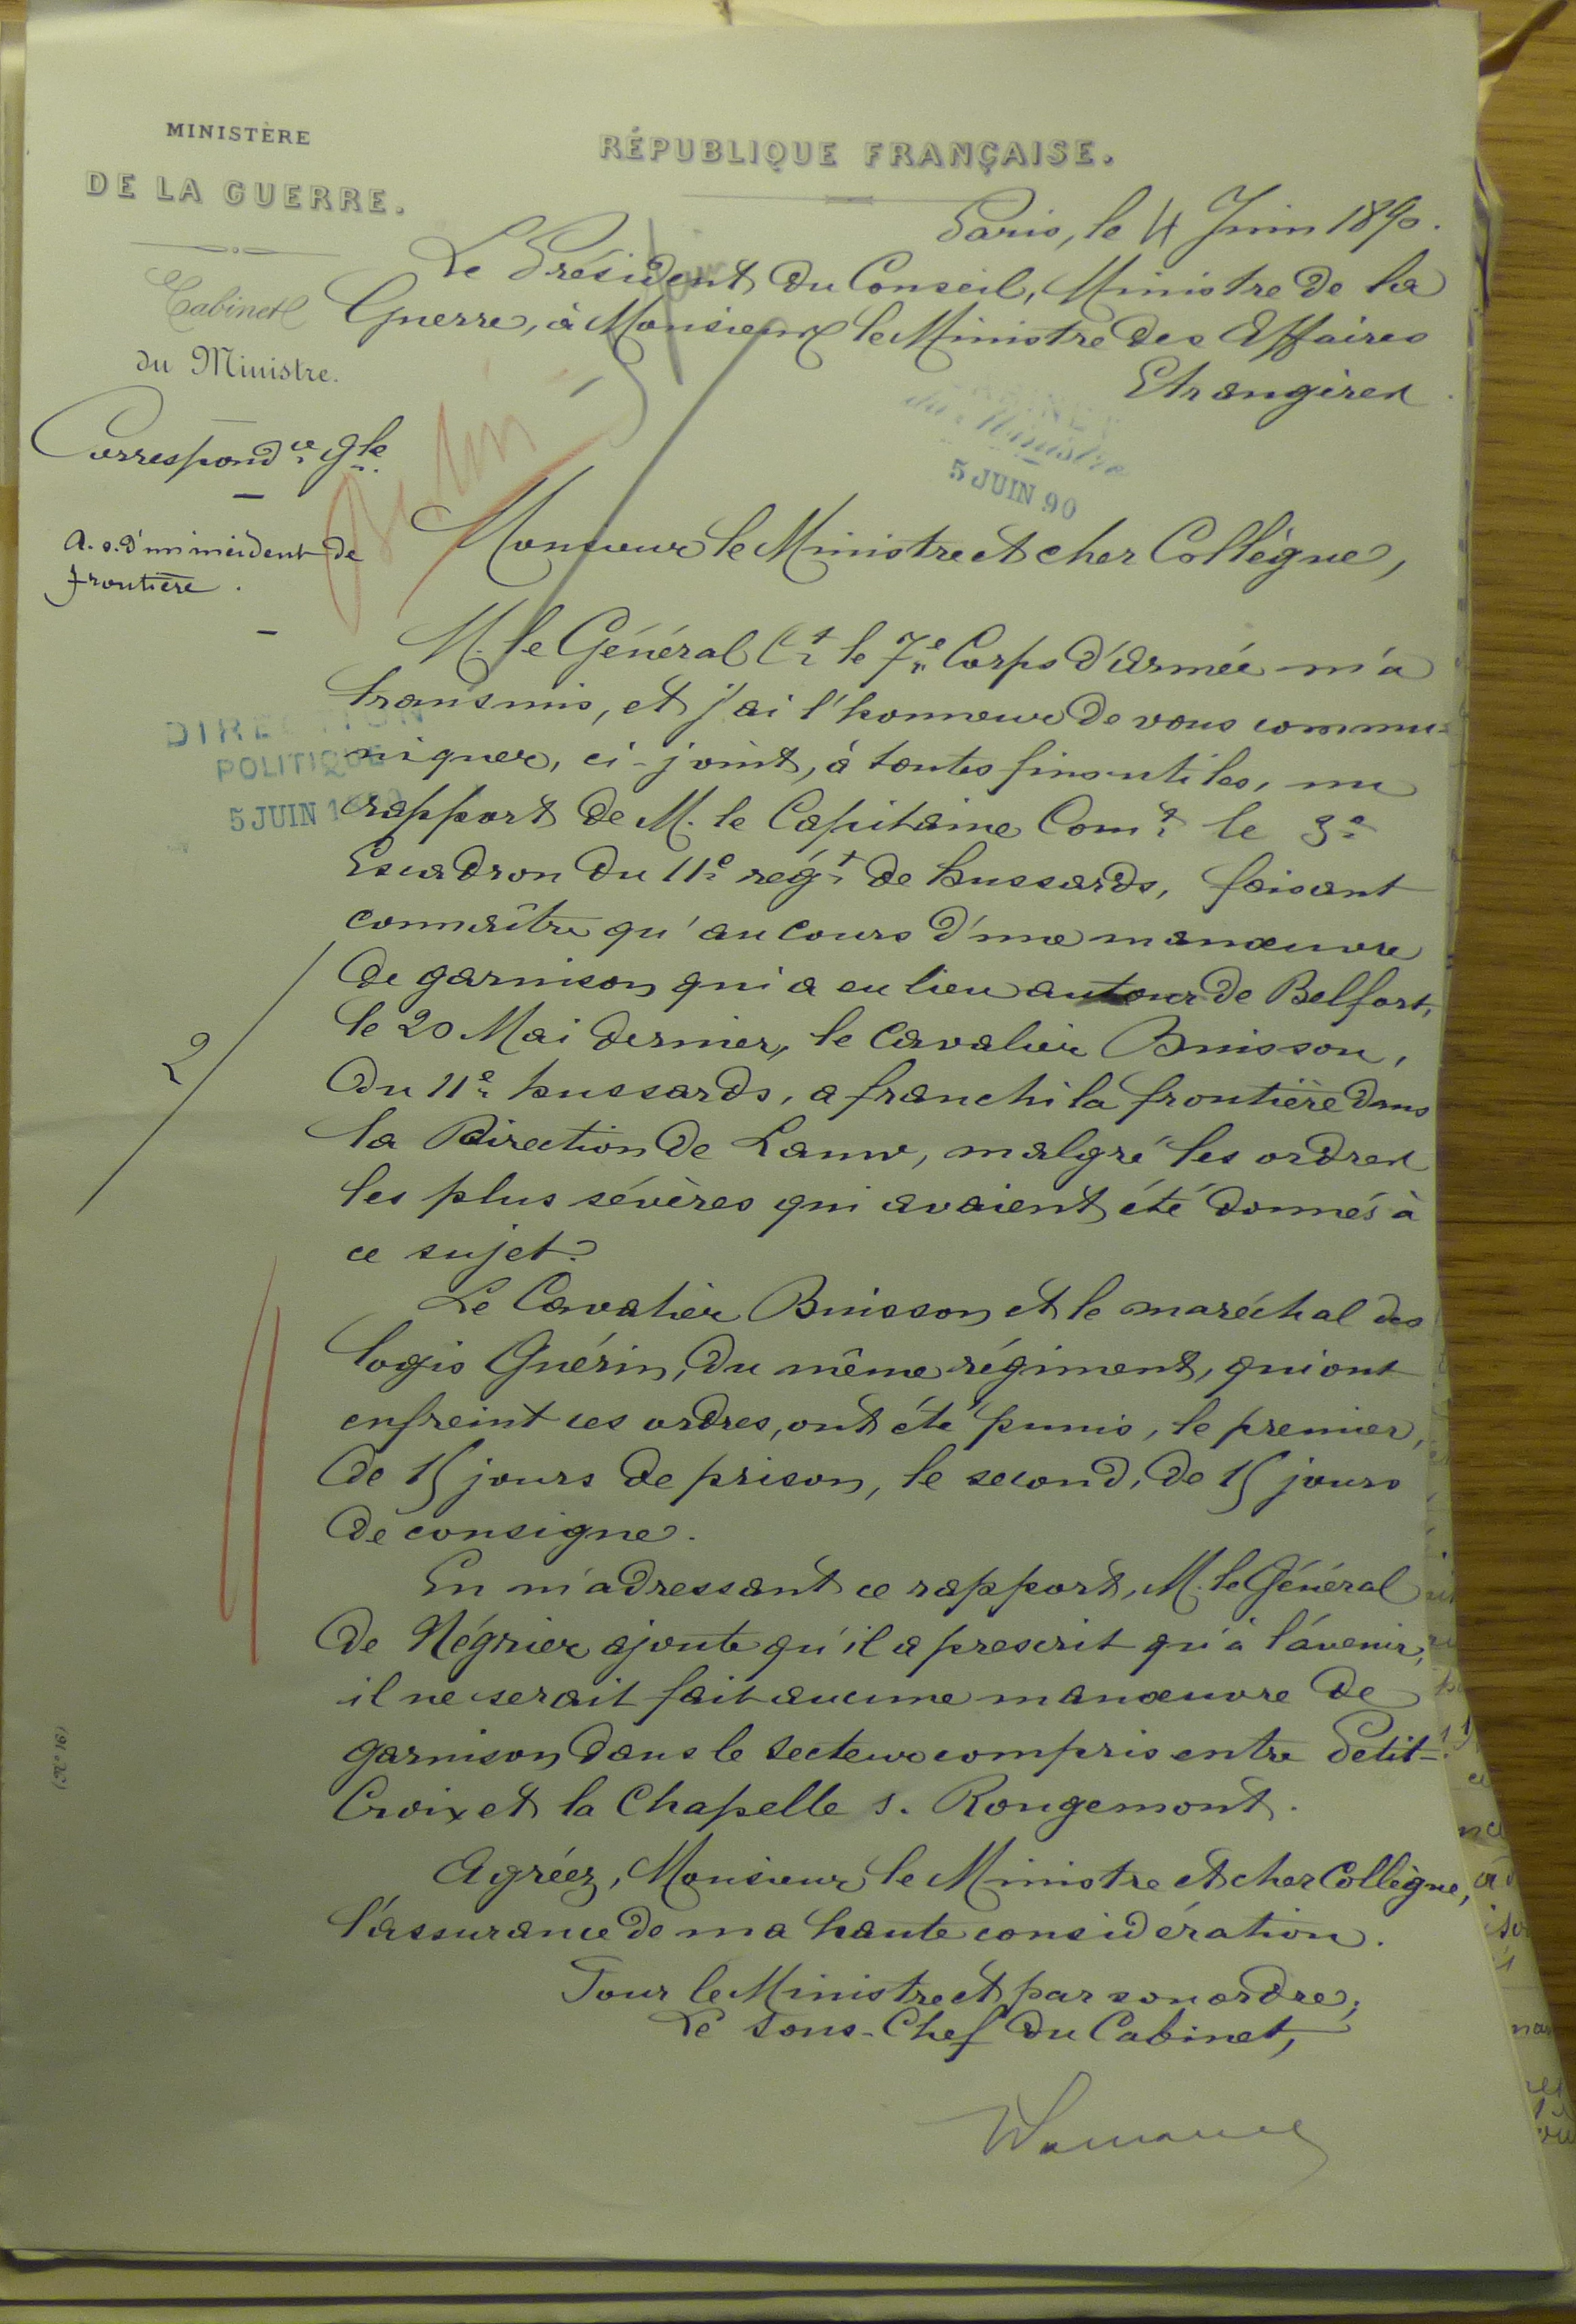 MINISTÈRE
DE LA GUERRE.
Cabinet
du Ministre.
Correspond.ce gle
A.s. d'un incident de
frontière.
RÉPUBLIQUE FRANÇAISE.
Paris, le 4 Juin 1890.
Le Président du Conseil, Ministre de la
Guerre, à Monsieur le Ministre des Affaires
Etrangères.
du Ministre
5 JUIN 90
Berlin
Monsieur le Ministre et cher Collègue,
M. le Général Ct le 7e Corps d'armée m'a
transmis, et j'ai l'honneur de vous commu-
niquer, ci-joint, à toutes fins utiles, un
rapport de M. le Capitaine Comt le 3e
Escadron du 11e régt de hussards, faisant
connaître qu'au cours d'une manœuvre
de garnison qui a eu lieu autour de Belfort,
le 20 Mai dernier, le Cavalier Buisson,
du 11e hussards, a franchi la frontière dans
la Direction de Lauw, malgré les ordres
les plus sévères qui avaient été donnés à
ce sujet.
DIRECTION
POLITIQUE
5 JUIN 1890
2
Le Cavalier Buisson et le maréchal des
logis Guérin, du même régiment, qui ont
enfreint ces ordres, ont été punis, le premier,
de 15 jours de prison, le second, de 15 jours
de consigne.
En m'adressant ce rapport, M. le Général
de Négrier ajoute qu'il a prescrit qu'à l'avenir,
il ne serait fait aucune manœuvre de
garnison dans le secteur compris entre Petit-
Croix et la Chapelle s. Rougemont.
Agréez, Monsieur le Ministre et cher Collègue,
l'assurance de ma haute considération.
Pour le Ministre et par son ordre,
Le Sous-Chef du Cabinet,
(N° 16)